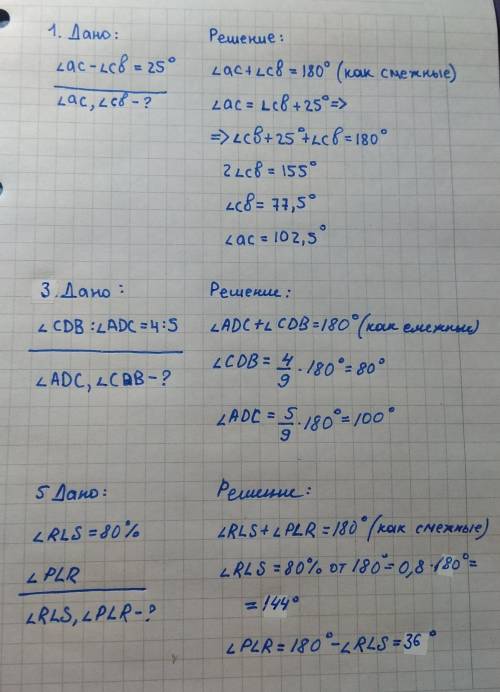 1. Дано:
∠ac-∠cb=25°
∠ac, ∠cb-?
Решение:
∠ac+∠cb=180° (как смежные)
∠ac=∠cb+25°=>
=>∠cb+25°+∠cb=180°
2∠cb=155°
∠cb=77,5°
∠ac=102,5°
3. Дано:
∠CDB:∠ADC=4:5
∠ADC, ∠CDB-?
Решение:
∠ADC+∠CDB=180° (как смежные)
∠CDB=4/9·180°=80°
∠ADC=5/9·180°=100°
5 Дано:
∠RLS=80%
∠PLR
∠RLS, ∠PLR-?
Решение:
∠RLS+∠PLR=180° (как смежные)
∠RLS=80% от 180°=0,8·180°=
=144°
∠PLR=180°-∠RLS=36°